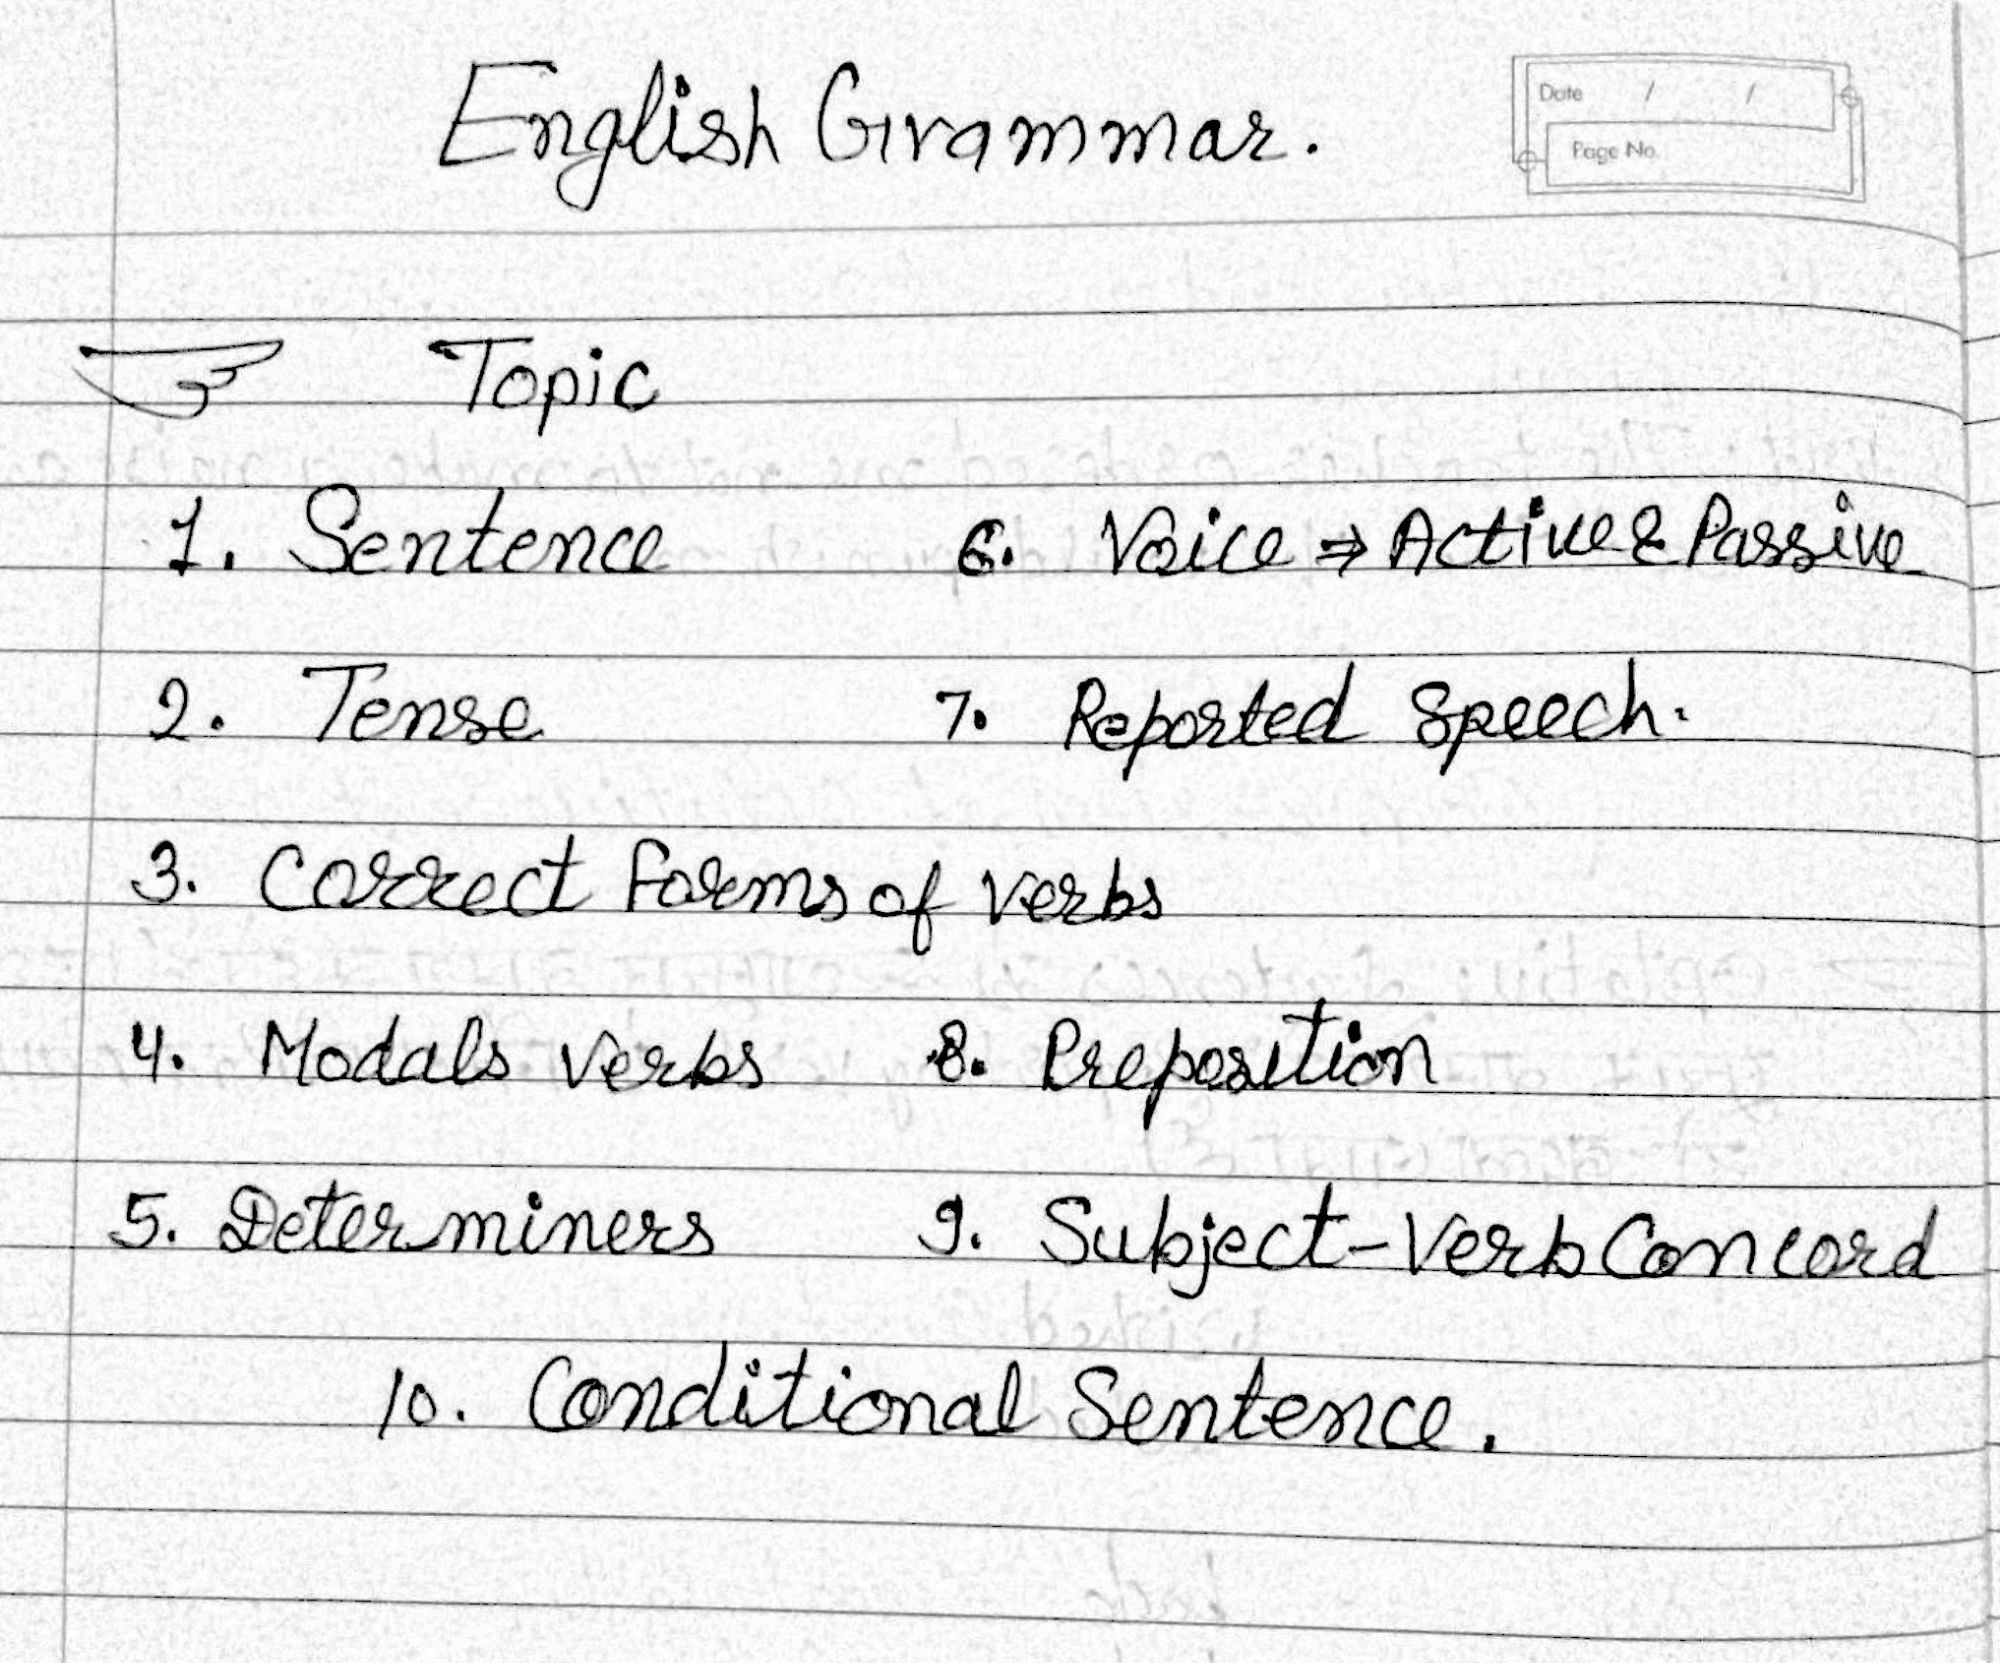 English Grammar.
Date / /
Page No.
Topic
1. Sentence
6. Voice ⇒ Active & Passive
2. Tense
7. Reported Speech.
3. Correct Forms of Verbs
4. Modals Verbs
8. Preposition
5. Determiners
9. Subject-Verb Concord
10. Conditional Sentence.